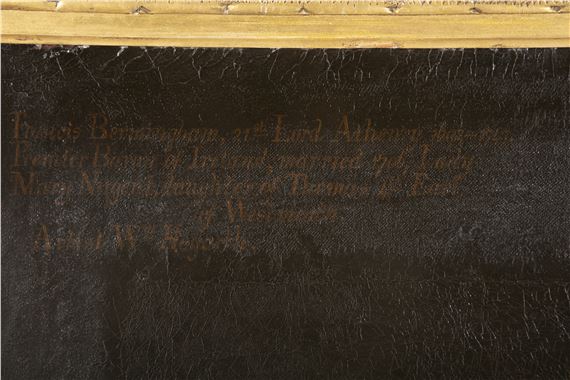 Francis Bermingham, 21st Lord Athenry
Premier Baron of Ireland, married Lady
Mary Nugent, daughter of Thomas 4th Earl
of Westmeath
Artist Wm Hogarth.